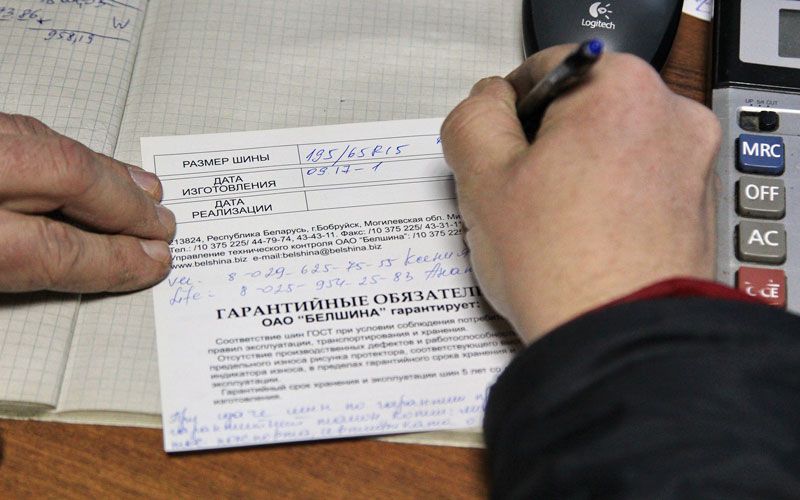 7386
958,19
W
Logitech
UP 5/4 CUT
MRC
OFF
AC
C·CE
РАЗМЕР ШИНЫ 195/65R15
ДАТА ИЗГОТОВЛЕНИЯ 0917-1
ДАТА РЕАЛИЗАЦИИ
213824, Республика Беларусь, г.Бобруйск, Могилевская обл. Ми
Тел.: /10 375 225/ 44-79-74, 43-43-11. Факс: /10 375 225/ 43-31-1
Управление технического контроля ОАО "Белшина": /10 375 225/
www.belshina.biz e-mail:belshina@belshina.biz
vel. 8-029-625-75-55 Ксения
Life: 8-025-954-25-83
ГАРАНТИЙНЫЕ ОБЯЗАТЕЛ
ОАО "БЕЛШИНА" гарантирует:
Соответствие шин ГОСТ при условии соблюдения потребит
правил эксплуатации, транспортирования и хранения.
Отсутствие производственных дефектов и работоспособность
предельного износа рисунка протектора, соответствующего вы
индикатора износа, в пределах гарантийного срока хранения и
эксплуатации.
Гарантийный срок хранения и эксплуатации шин 5 лет со
изготовления.
При шин по гарантии
гарантийный талон